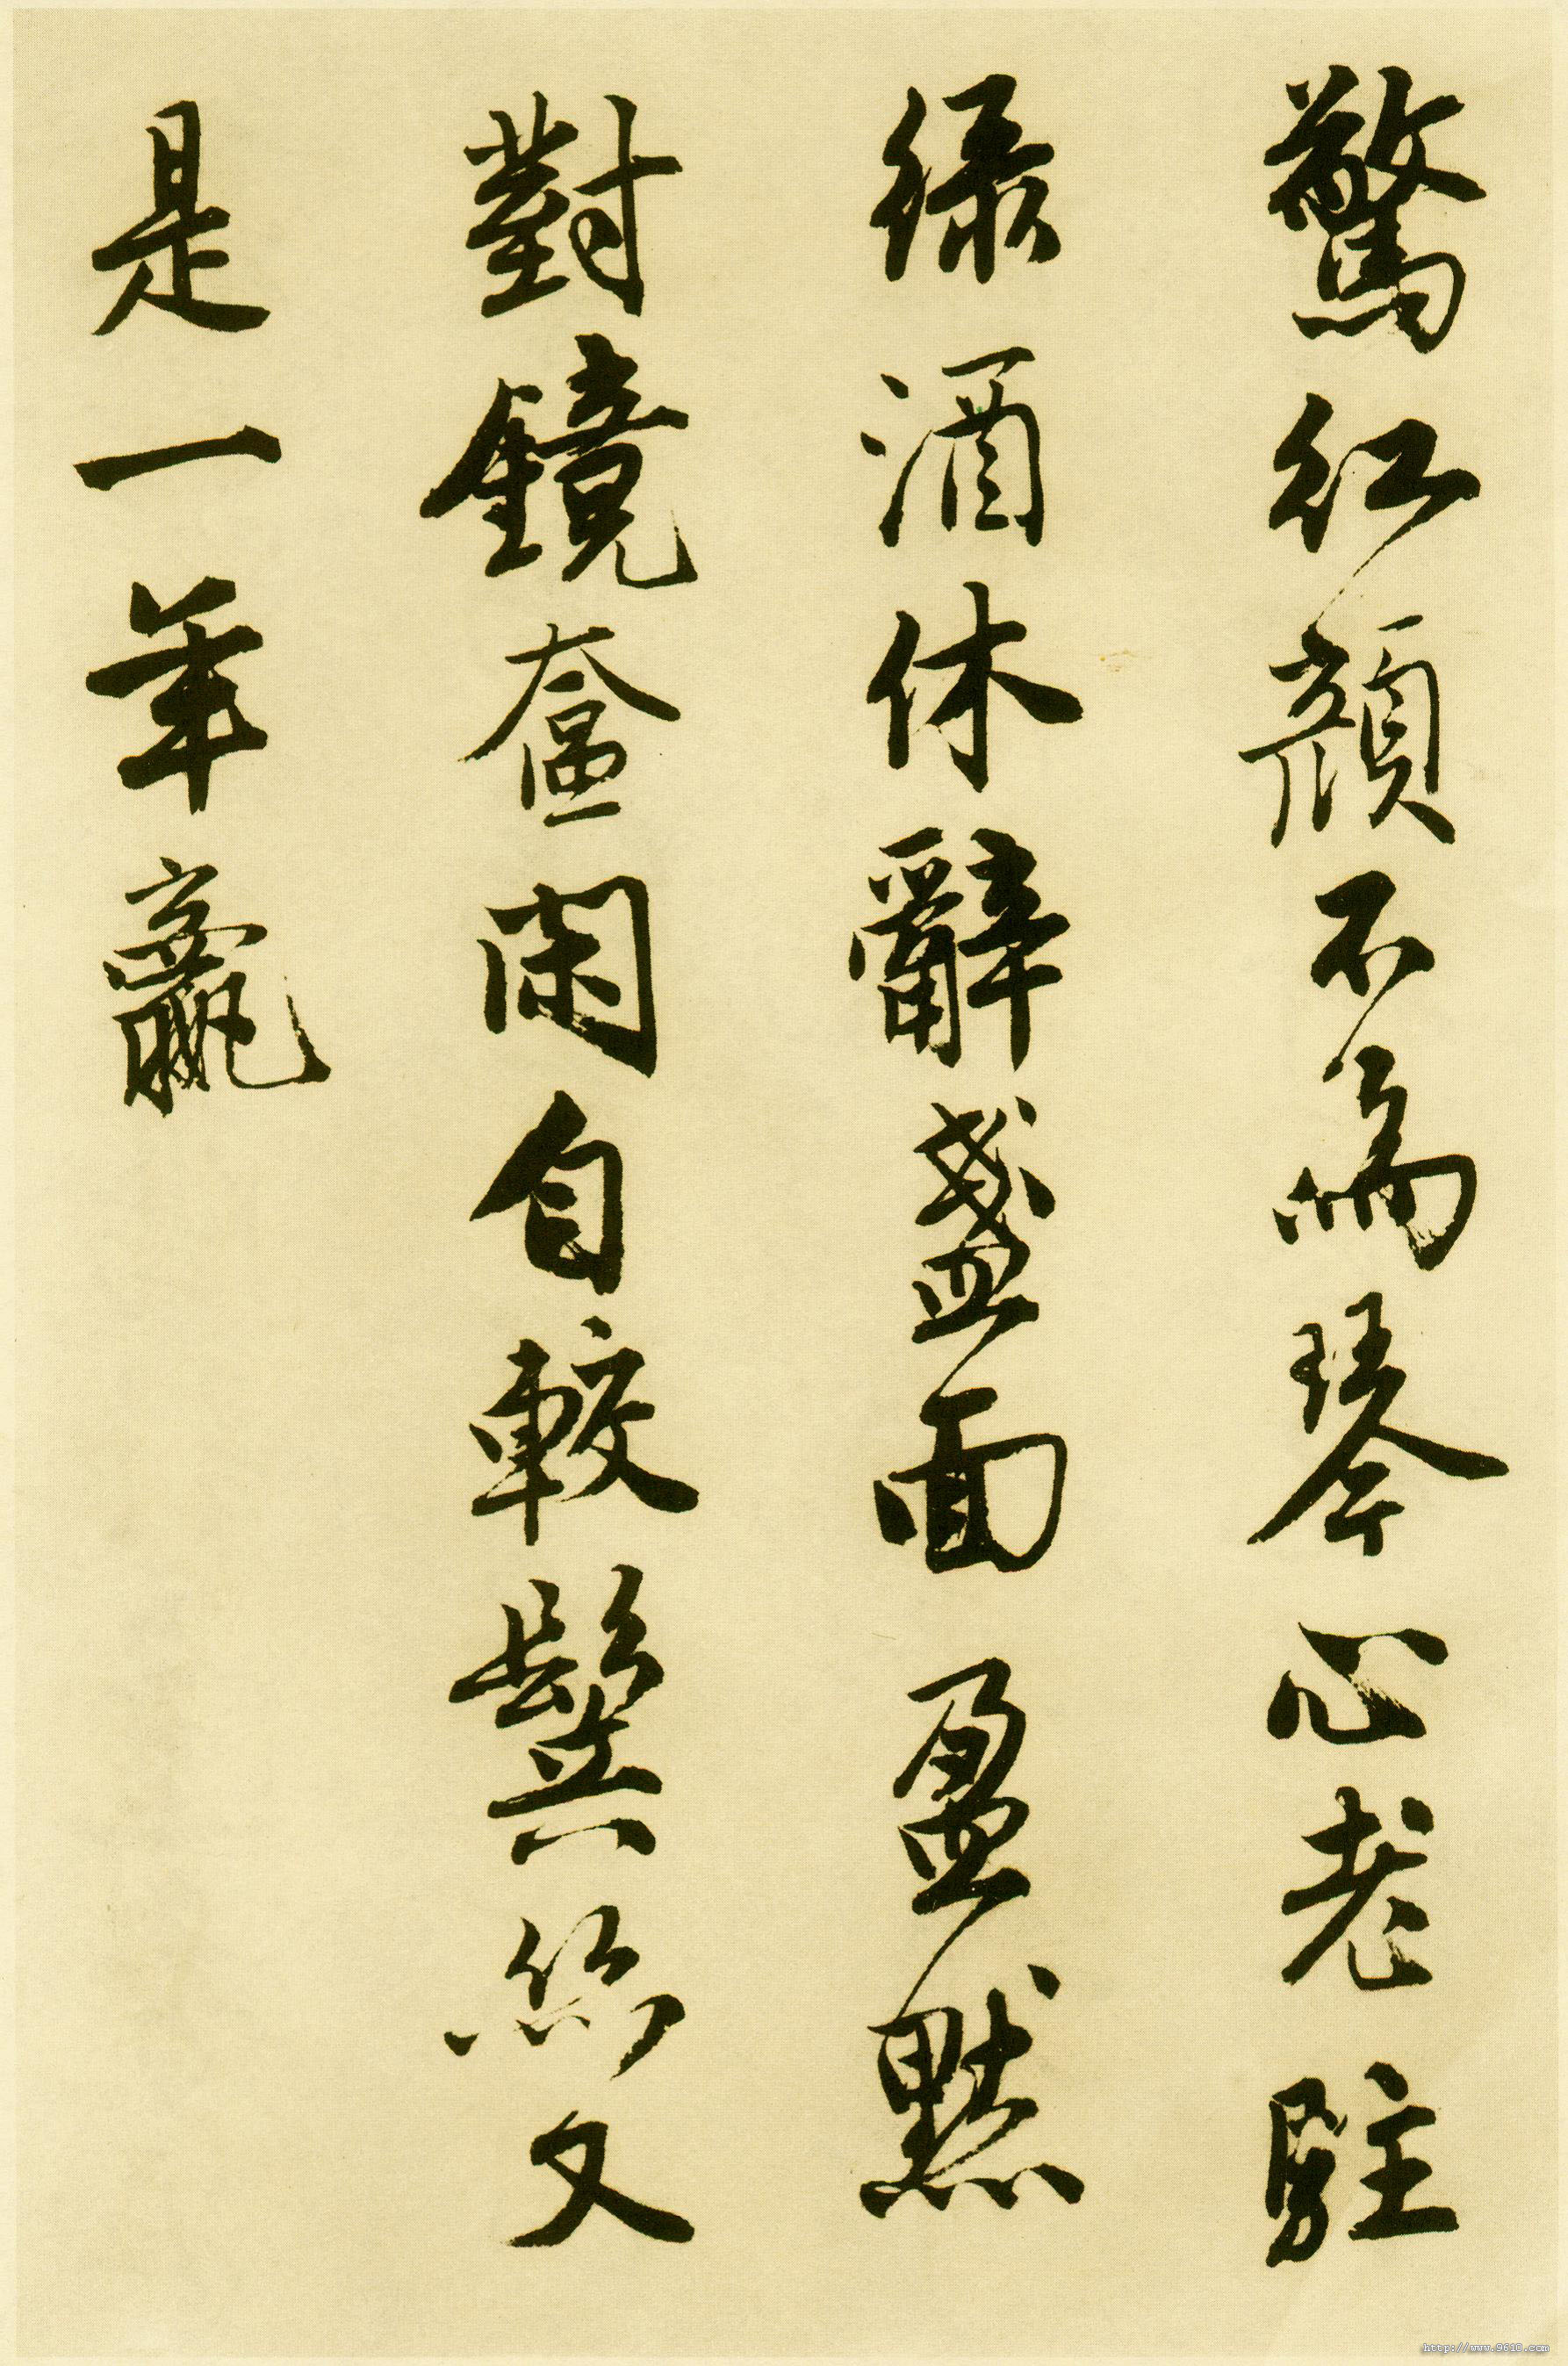 驚紅顏不為琴心老駐
綠酒休辭盞面盈默
對鏡奩閑自較鬢絲又
是一年贏
http://www.9610.com